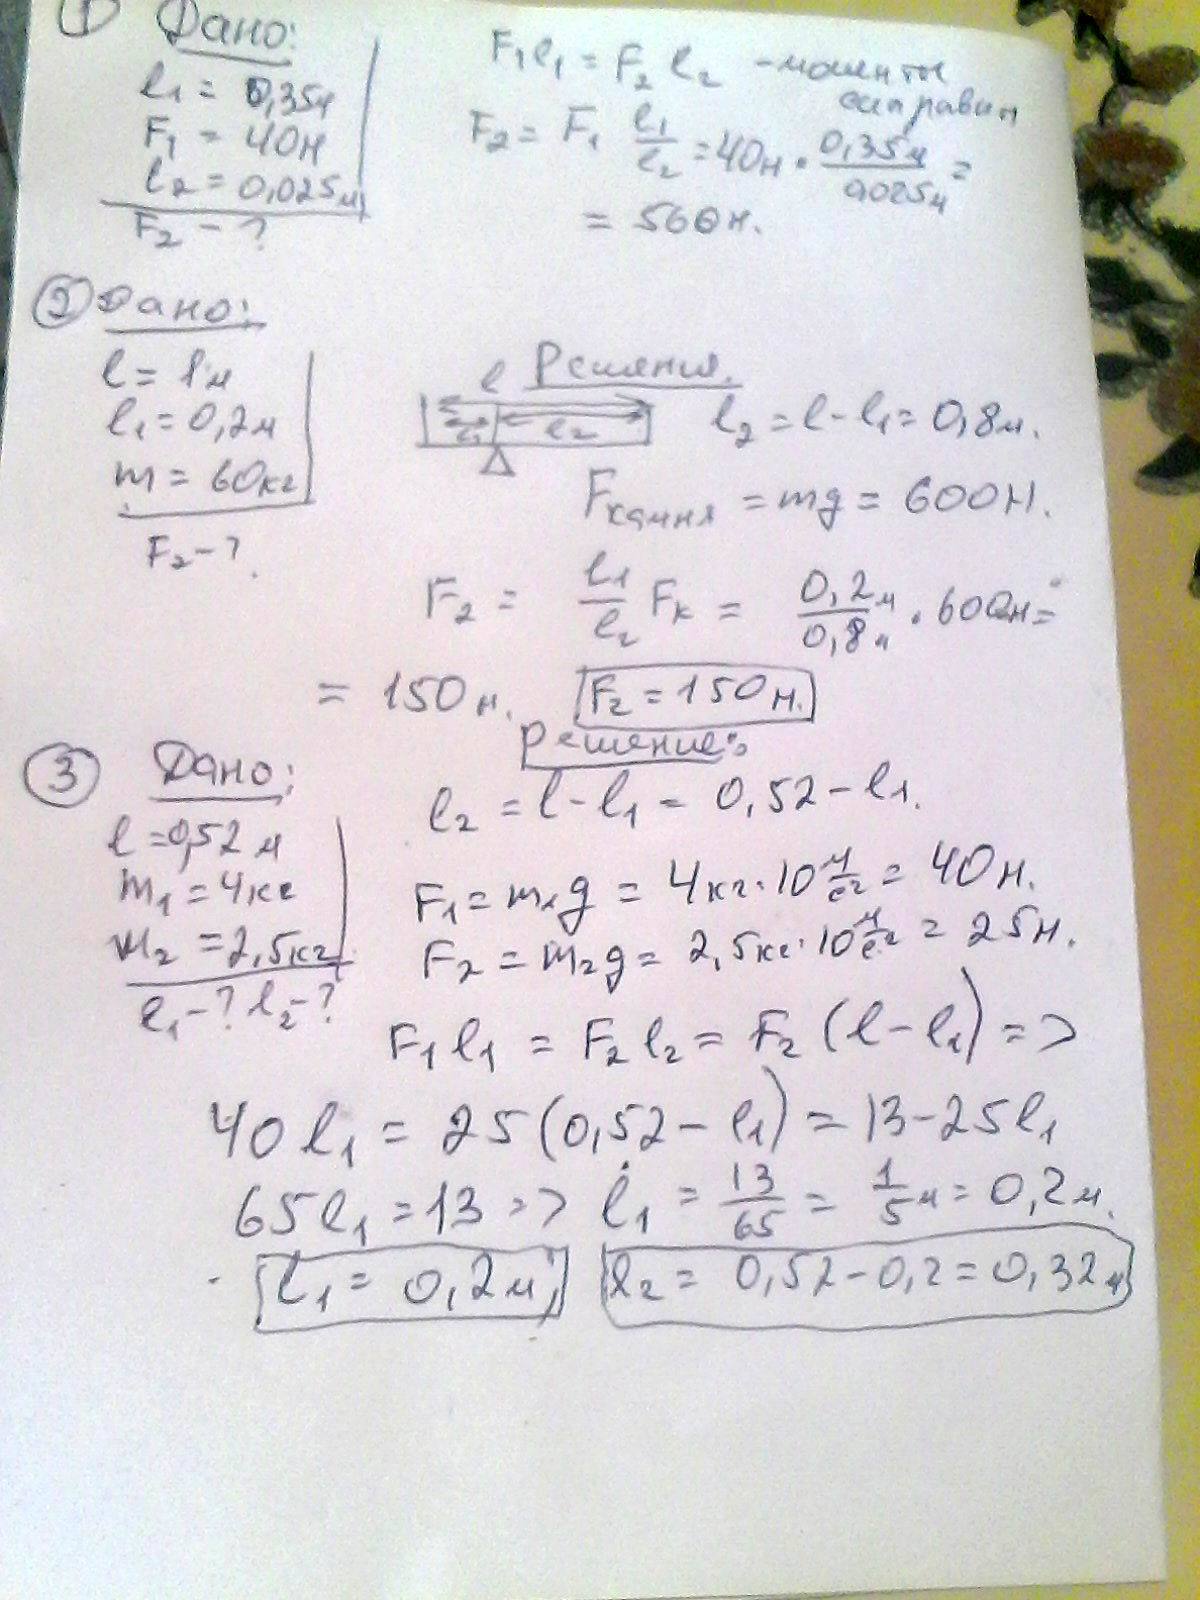 ① Дано:
l₁ = 0,35м
F₁ = 40н
l₂ = 0,025м
F₂ - ?
F₁l₁ = F₂ l₂ - моменты
сил равны
F₂ = F₁ l₁/l₂ = 40н · 0,35м/0,025м =
= 560н.
② Дано:
l = 1м
l₁ = 0,2м
m = 60кг
F₂ - ?
Решения.
l
l₁ l₂
l₂ = l - l₁ = 0,8м.
Fкамня = mg = 600Н.
F₂ = l₁/l₂ Fк = 0,2м/0,8м · 600н =
= 150н. F₂ = 150н.
③ Дано:
l = 0,52м
m₁ = 4кг
m₂ = 2,5кг
l₁ - ? l₂ - ?
Решение:
l₂ = l - l₁ = 0,52 - l₁.
F₁ = m₁g = 4кг · 10 м/с² = 40н.
F₂ = m₂g = 2,5кг · 10 м/с² = 25н.
F₁l₁ = F₂l₂ = F₂(l - l₁) =>
40l₁ = 25(0,52 - l₁) = 13 - 25l₁
65l₁ = 13 => l₁ = 13/65 = 1/5 м = 0,2м.
l₁ = 0,2м; l₂ = 0,52 - 0,2 = 0,32м